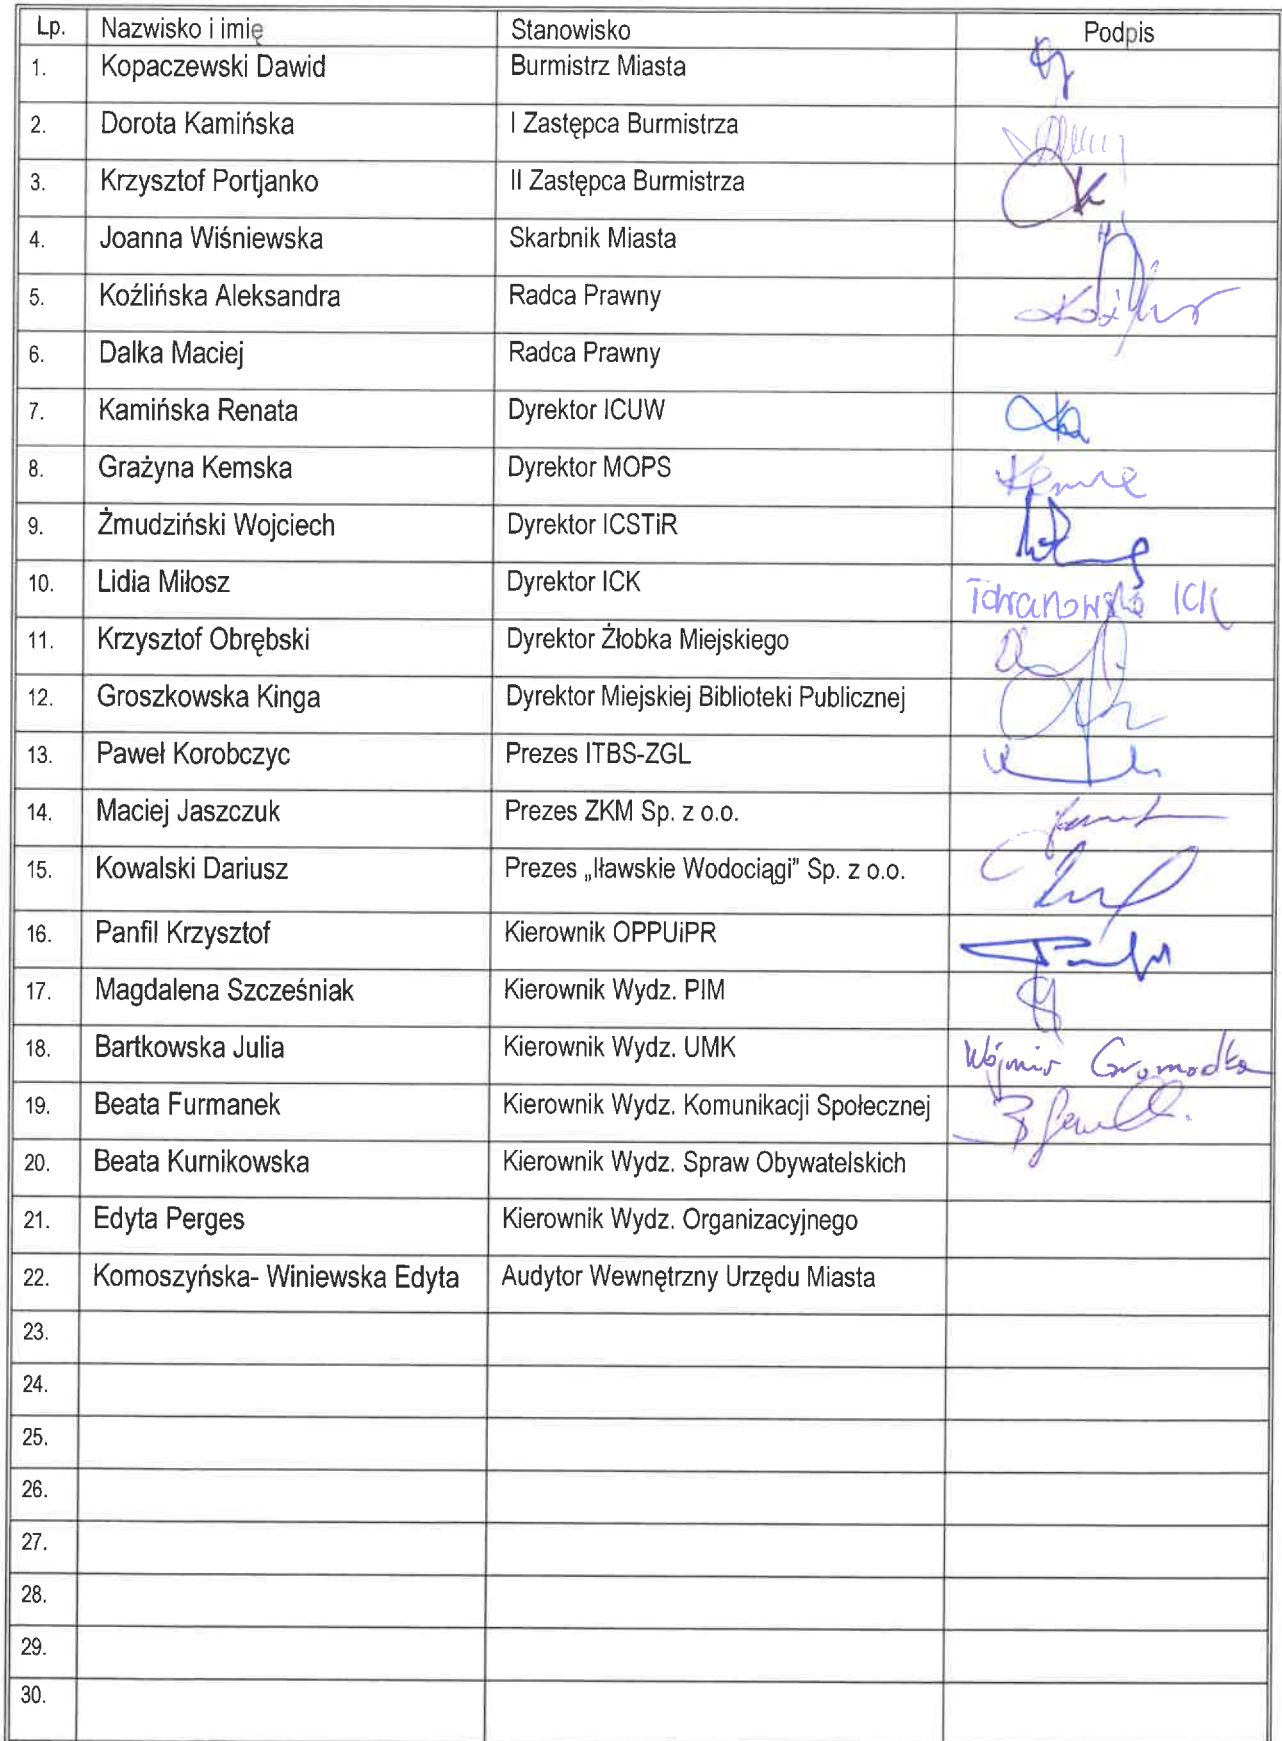 Lp. Nazwisko i imię Stanowisko Podpis
1. Kopaczewski Dawid Burmistrz Miasta
2. Dorota Kamińska I Zastępca Burmistrza
3. Krzysztof Portjanko II Zastępca Burmistrza
4. Joanna Wiśniewska Skarbnik Miasta
5. Koźlińska Aleksandra Radca Prawny
6. Dalka Maciej Radca Prawny
7. Kamińska Renata Dyrektor ICUW
8. Grażyna Kemska Dyrektor MOPS
9. Żmudziński Wojciech Dyrektor ICSTiR
10. Lidia Miłosz Dyrektor ICK ICK
11. Krzysztof Obrębski Dyrektor Żłobka Miejskiego
12. Groszkowska Kinga Dyrektor Miejskiej Biblioteki Publicznej
13. Paweł Korobczyc Prezes ITBS-ZGL
14. Maciej Jaszczuk Prezes ZKM Sp. z o.o.
15. Kowalski Dariusz Prezes „Iławskie Wodociągi” Sp. z o.o.
16. Panfil Krzysztof Kierownik OPPUiPR
17. Magdalena Szcześniak Kierownik Wydz. PIM
18. Bartkowska Julia Kierownik Wydz. UMK
19. Beata Furmanek Kierownik Wydz. Komunikacji Społecznej
20. Beata Kurnikowska Kierownik Wydz. Spraw Obywatelskich
21. Edyta Perges Kierownik Wydz. Organizacyjnego
22. Komoszyńska- Winiewska Edyta Audytor Wewnętrzny Urzędu Miasta
23.
24.
25.
26.
27.
28.
29.
30.